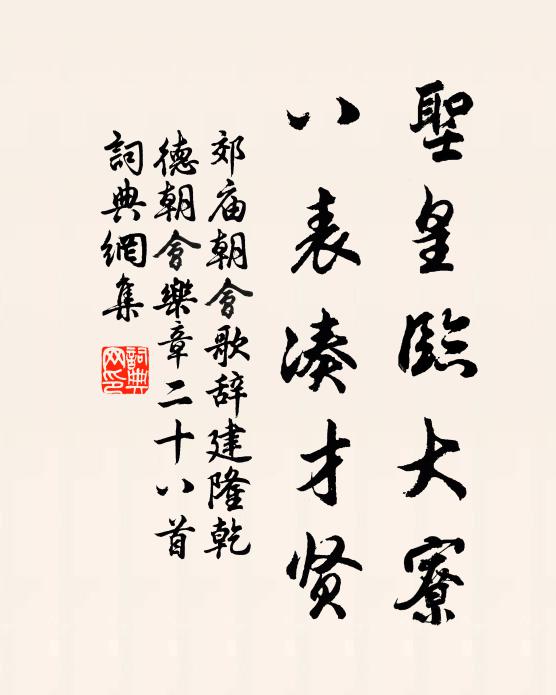 聖皇臨大寮
八表湊才贤
郊庙朝會歌辞建隆乾
德朝會樂章二十八首
詞典網集
詞典網印